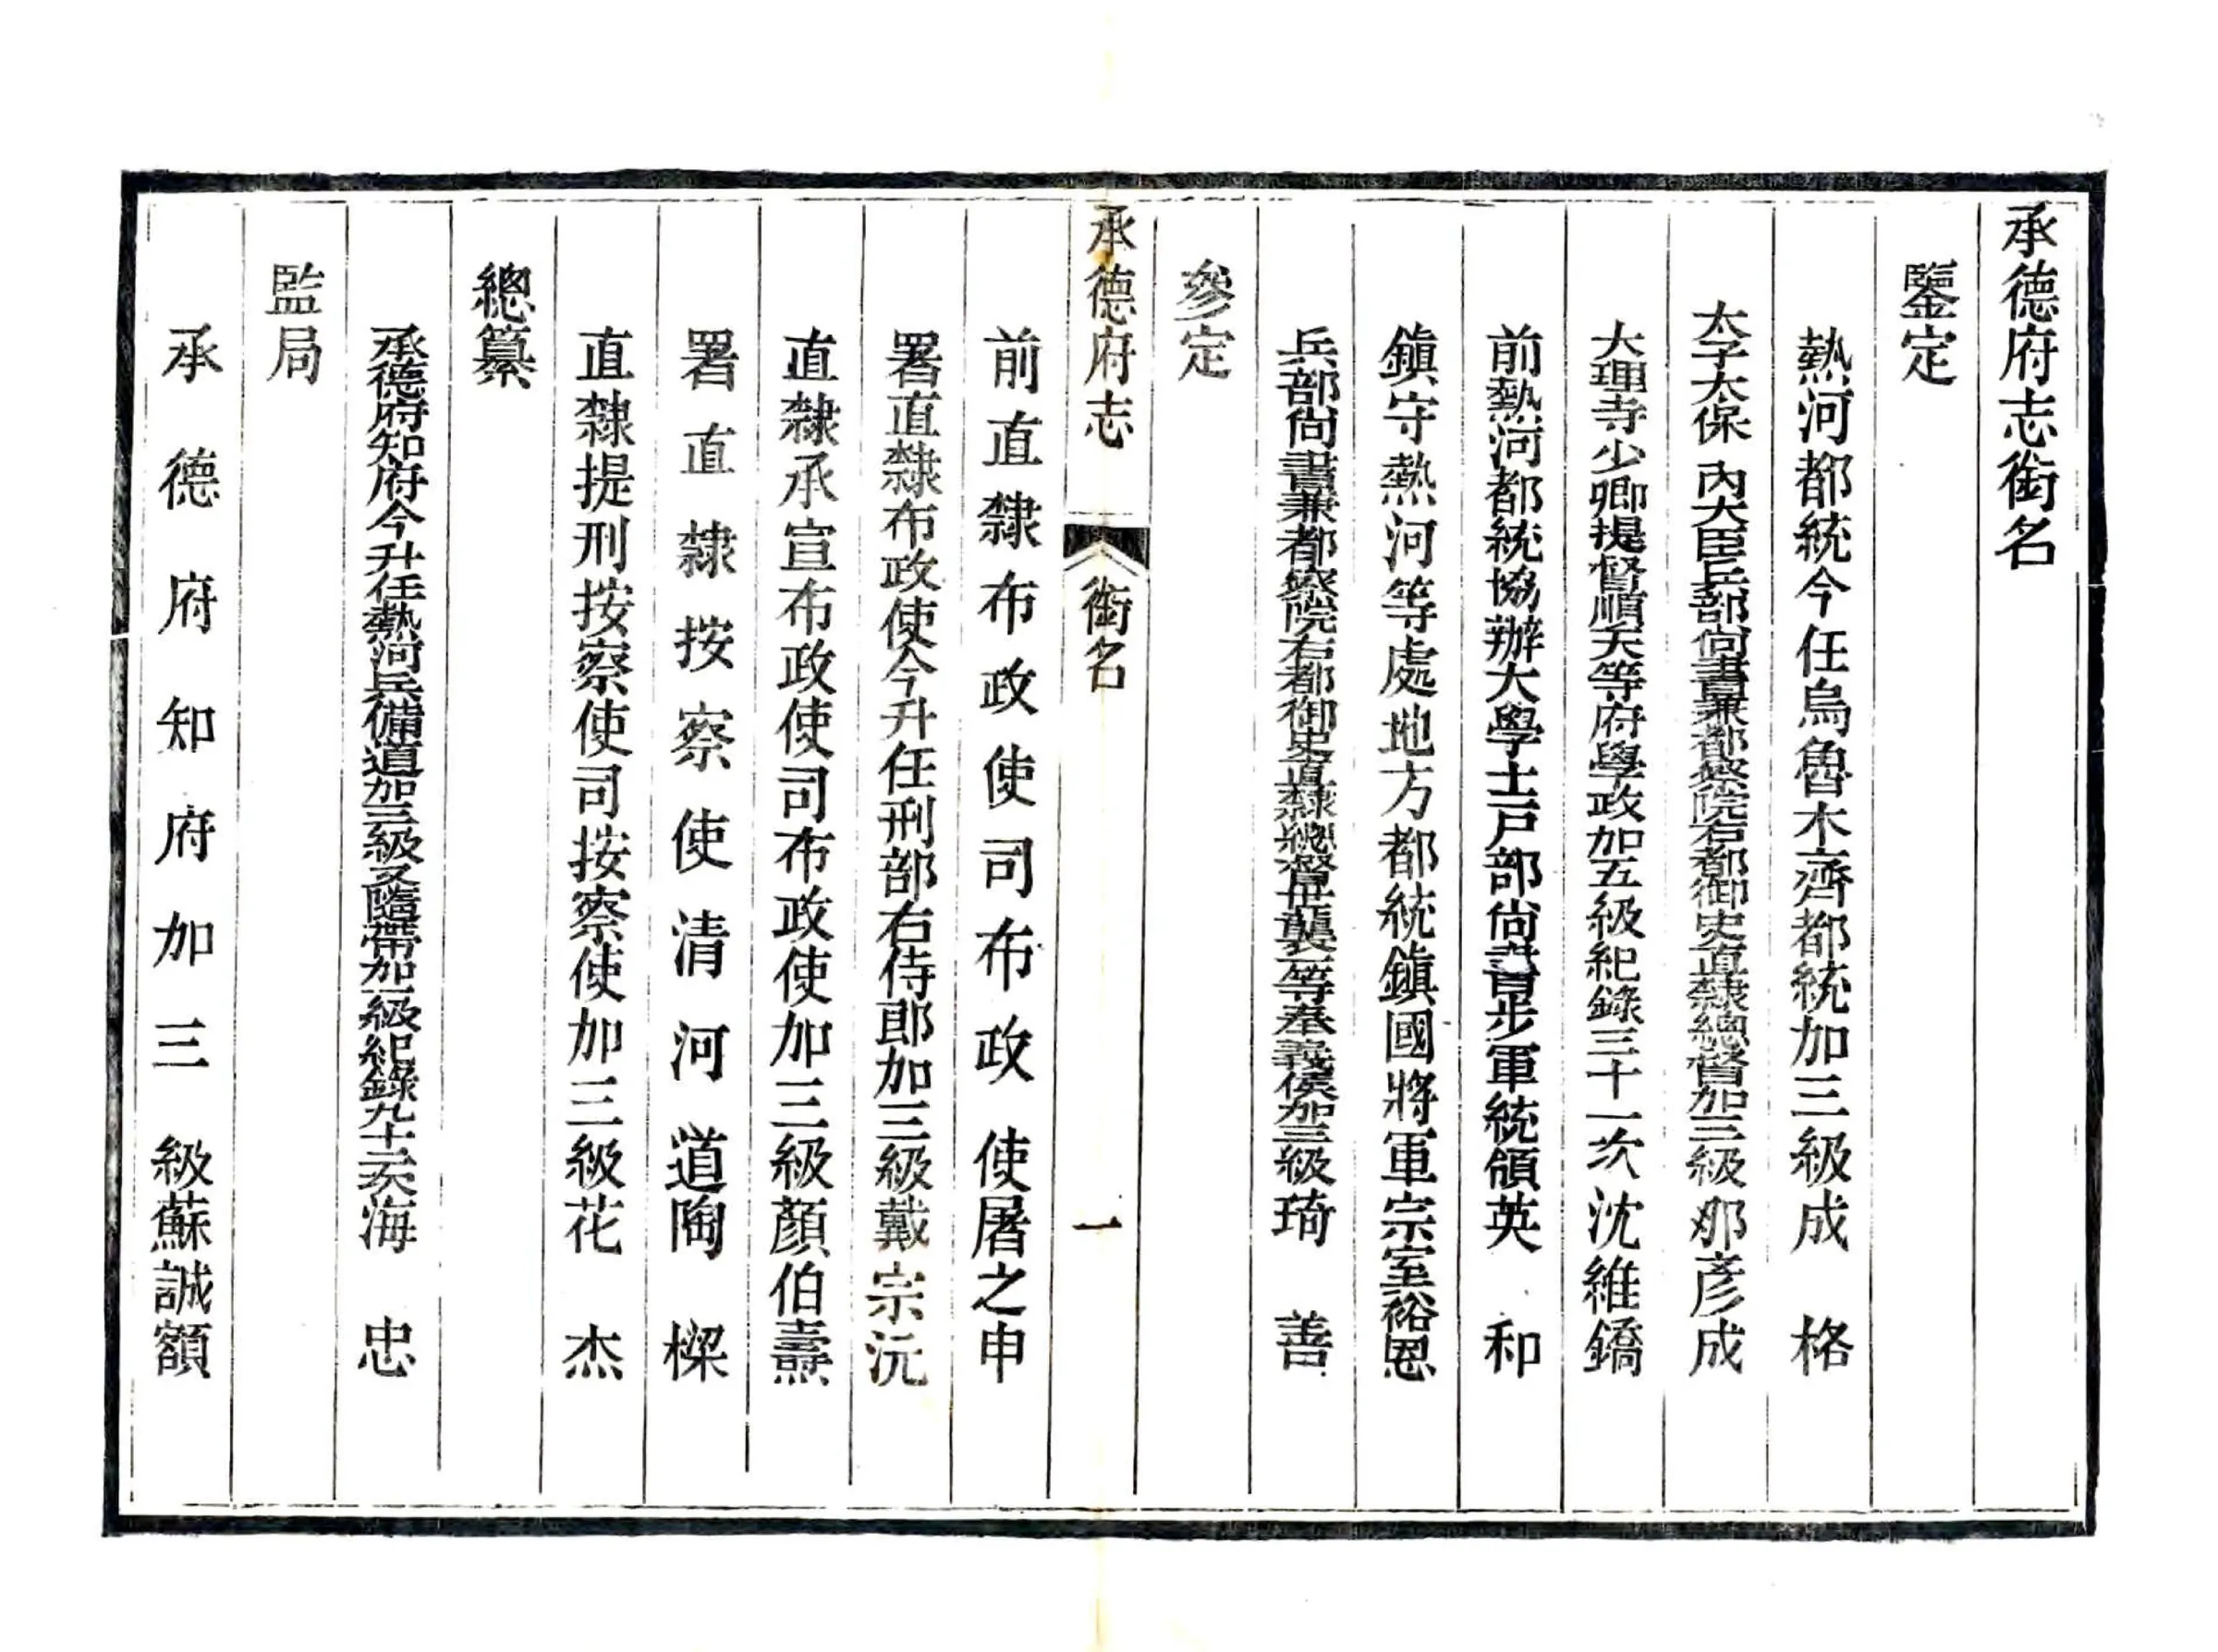 承德府志銜名
鑒定
熱河都統今任烏魯木齊都統加三級成格
太子太保內大臣兵部尚書兼都察院右都御史直隸總督加三級那彥成
大理寺少卿提督順天等府學政加五級紀錄三十一次沈維鐈
前熱河都統協辦大學士戶部尚書步軍統領英和
鎮守熱河等處地方都統鎮國將軍宗室裕恩
兵部尚書兼都察院右都御史直隸總督世襲一等奉義侯加三級琦善
參定
承德府志 銜名 一
前直隸布政使司布政使屠之申
署直隸布政使今升任刑部右侍郎加三級戴宗沅
直隸承宣布政使司布政使加三級顏伯燾
署直隸按察使清河道陶樑
直隸提刑按察使司按察使加三級花杰
總纂
承德府知府今升任熱河兵備道加三級又隨帶加一級紀錄九十三次海忠
監局
承德府知府加三級蘇誠額